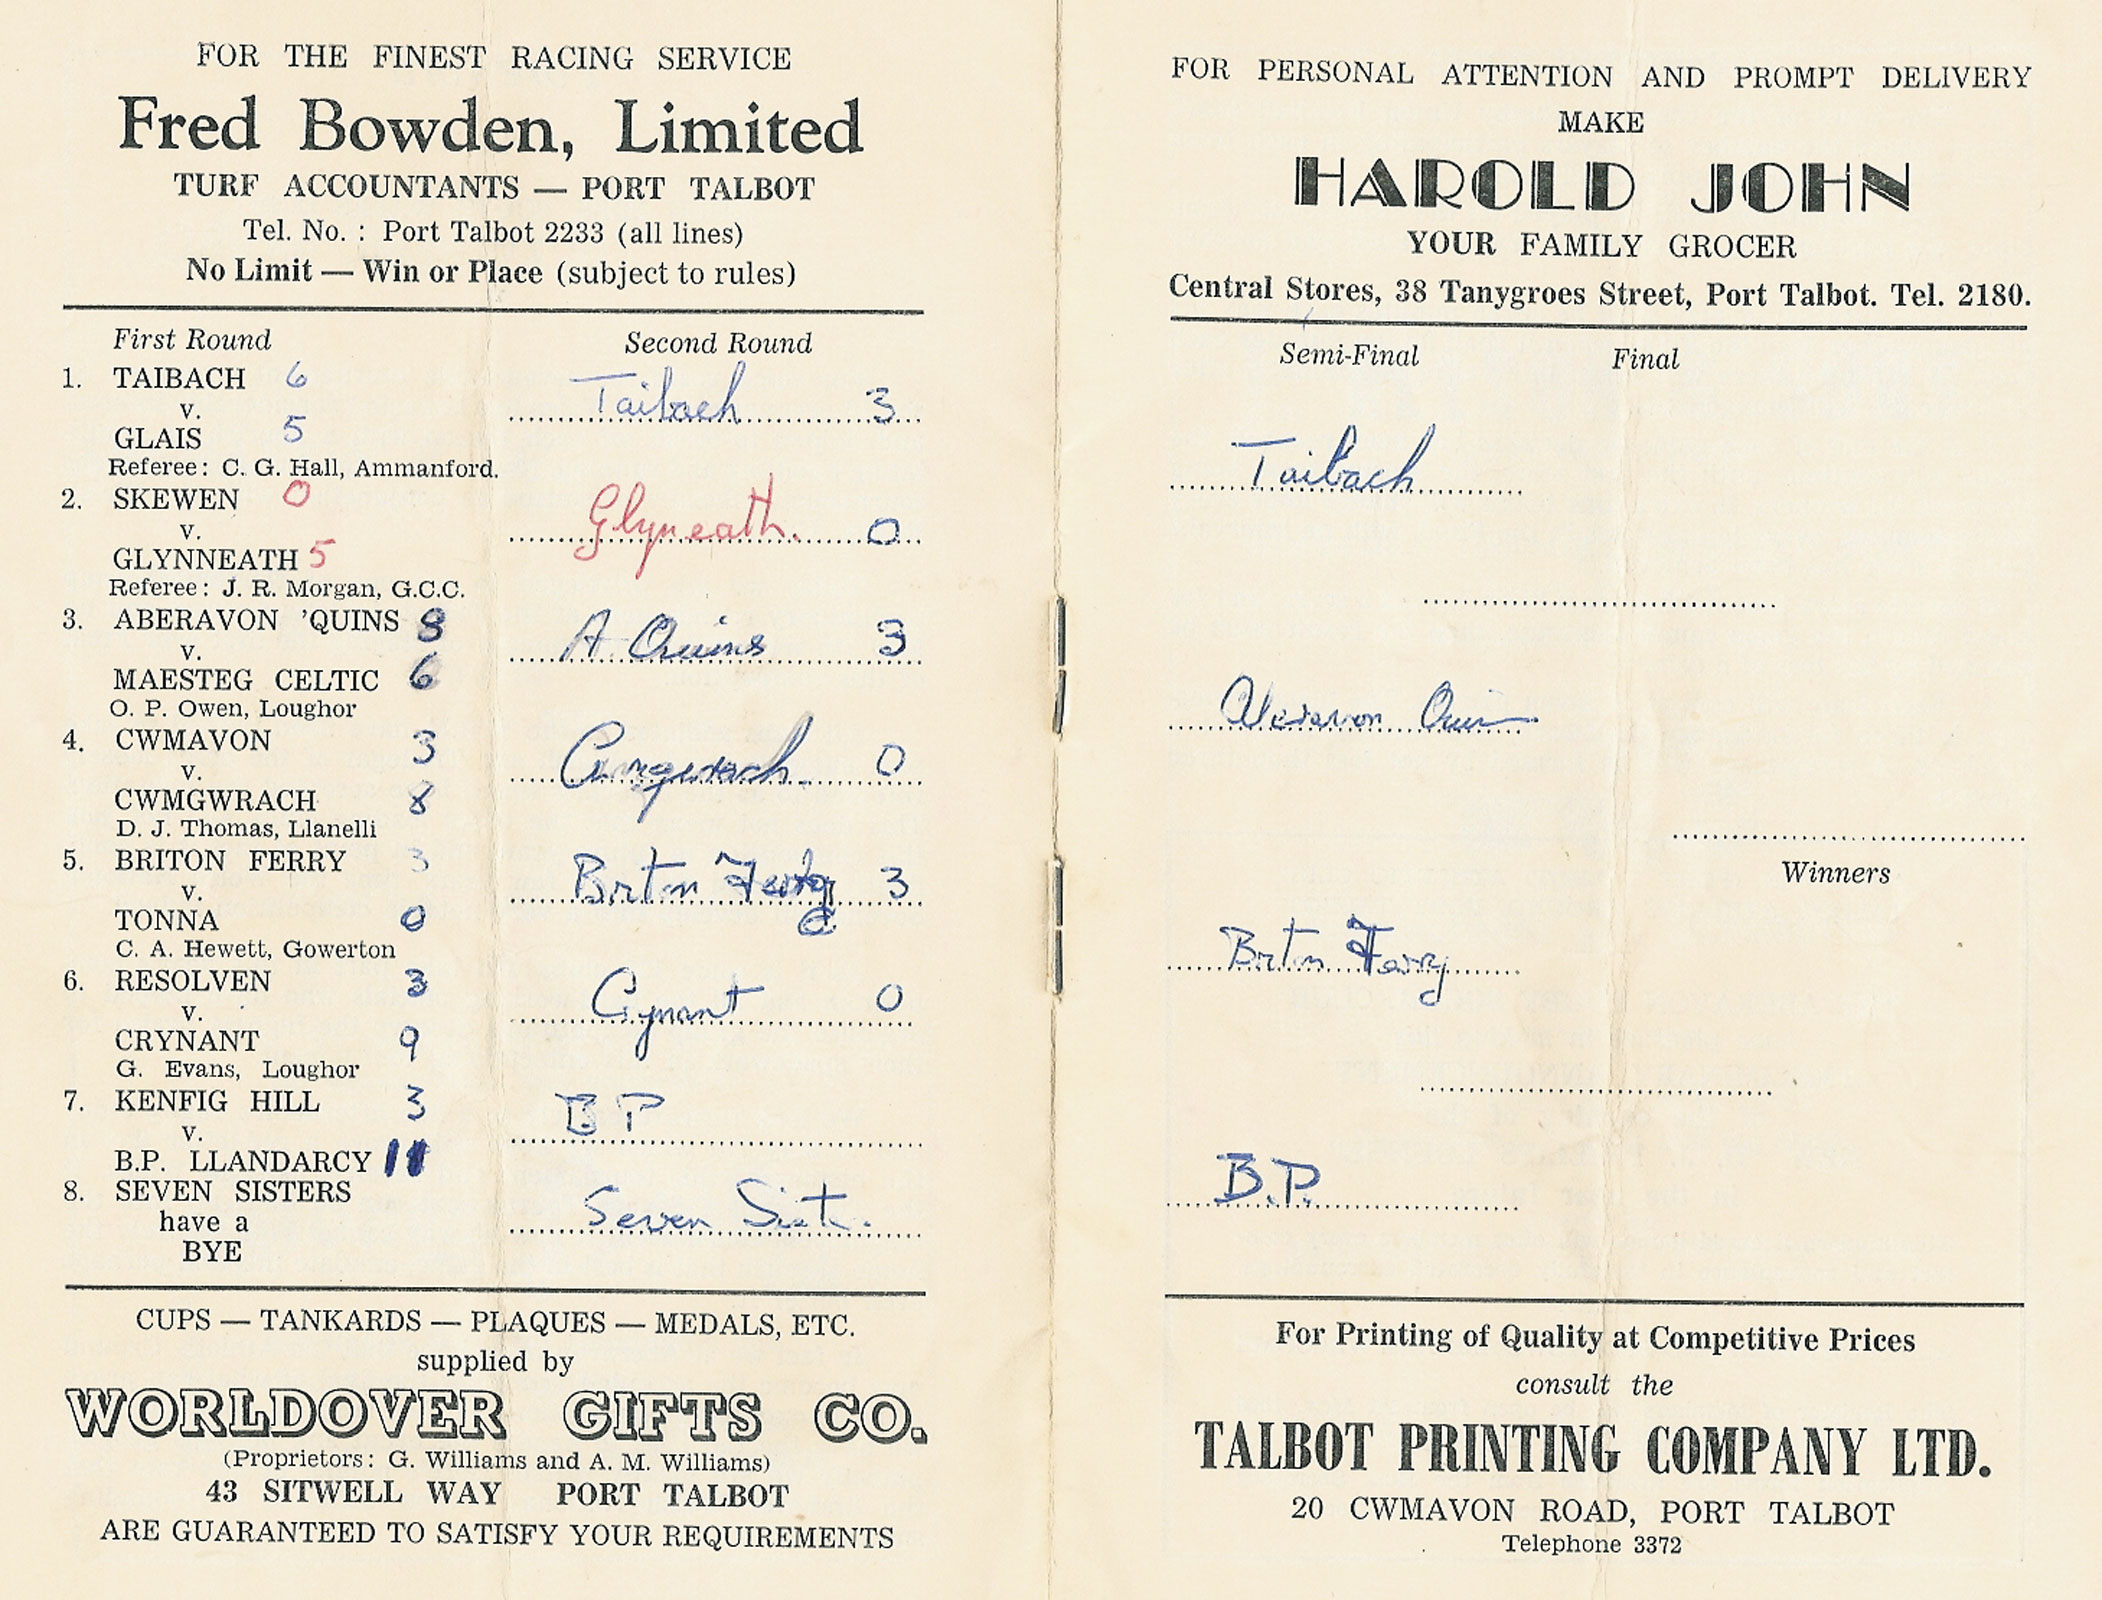 FOR THE FINEST RACING SERVICE
Fred Bowden, Limited
TURF ACCOUNTANTS — PORT TALBOT
Tel. No. : Port Talbot 2233 (all lines)
No Limit — Win or Place (subject to rules)
First Round Second Round
1. TAIBACH 6
v.
Taibach 3
GLAIS 5
Referee: C. G. Hall, Ammanford.
2. SKEWEN 0
v.
Glyneath. 0
GLYNNEATH 5
Referee: J. R. Morgan, G.C.C.
3. ABERAVON 'QUINS 8
v.
A Quins 3
MAESTEG CELTIC 6
O. P. Owen, Loughor
4. CWMAVON 3
v.
0
CWMGWRACH 8
D. J. Thomas, Llanelli
5. BRITON FERRY 3
v.
Brtn Ferry 3
TONNA 0
C. A. Hewett, Gowerton
6. RESOLVEN 3
v.
Crynant 0
CRYNANT 9
G. Evans, Loughor
7. KENFIG HILL 3
v.
B P
B.P. LLANDARCY 11
8. SEVEN SISTERS
have a
Seven Sist.
BYE
CUPS — TANKARDS — PLAQUES — MEDALS, ETC.
supplied by
WORLDOVER GIFTS CO.
(Proprietors: G. Williams and A. M. Williams)
43 SITWELL WAY PORT TALBOT
ARE GUARANTEED TO SATISFY YOUR REQUIREMENTS
FOR PERSONAL ATTENTION AND PROMPT DELIVERY
MAKE
HAROLD JOHN
YOUR FAMILY GROCER
Central Stores, 38 Tanygroes Street, Port Talbot. Tel. 2180.
Semi-Final Final
Taibach
Aberavon Quin
Winners
Brtn Ferry
B.P.
For Printing of Quality at Competitive Prices
consult the
TALBOT PRINTING COMPANY LTD.
20 CWMAVON ROAD, PORT TALBOT
Telephone 3372